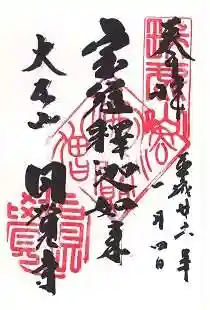 奉拝
平成廿六年
一月四日
宝冠釋迦如来
大本山
円覚寺